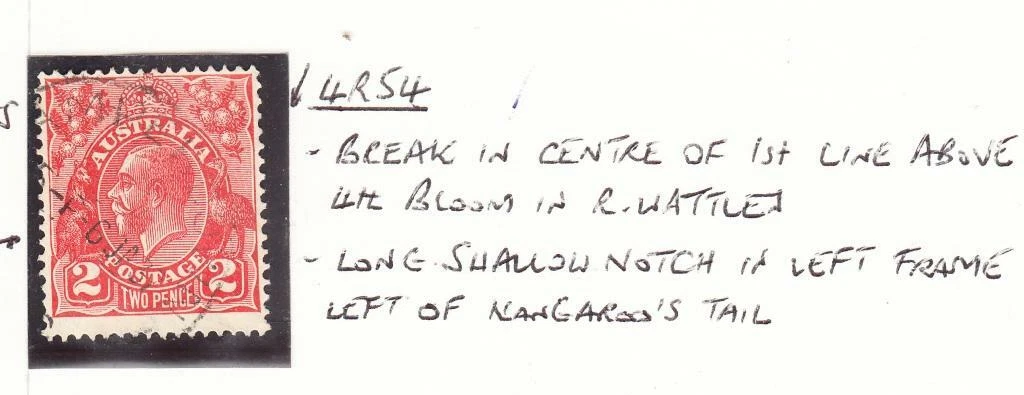 4R54
- BREAK IN CENTRE OF 1st LINE ABOVE
4th BLOOM IN R. WATTLES
- LONG SHALLOW NOTCH IN LEFT FRAME
LEFT OF KANGAROO'S TAIL
AUSTRALIA
POSTAGE
2 2
TWO PENCE